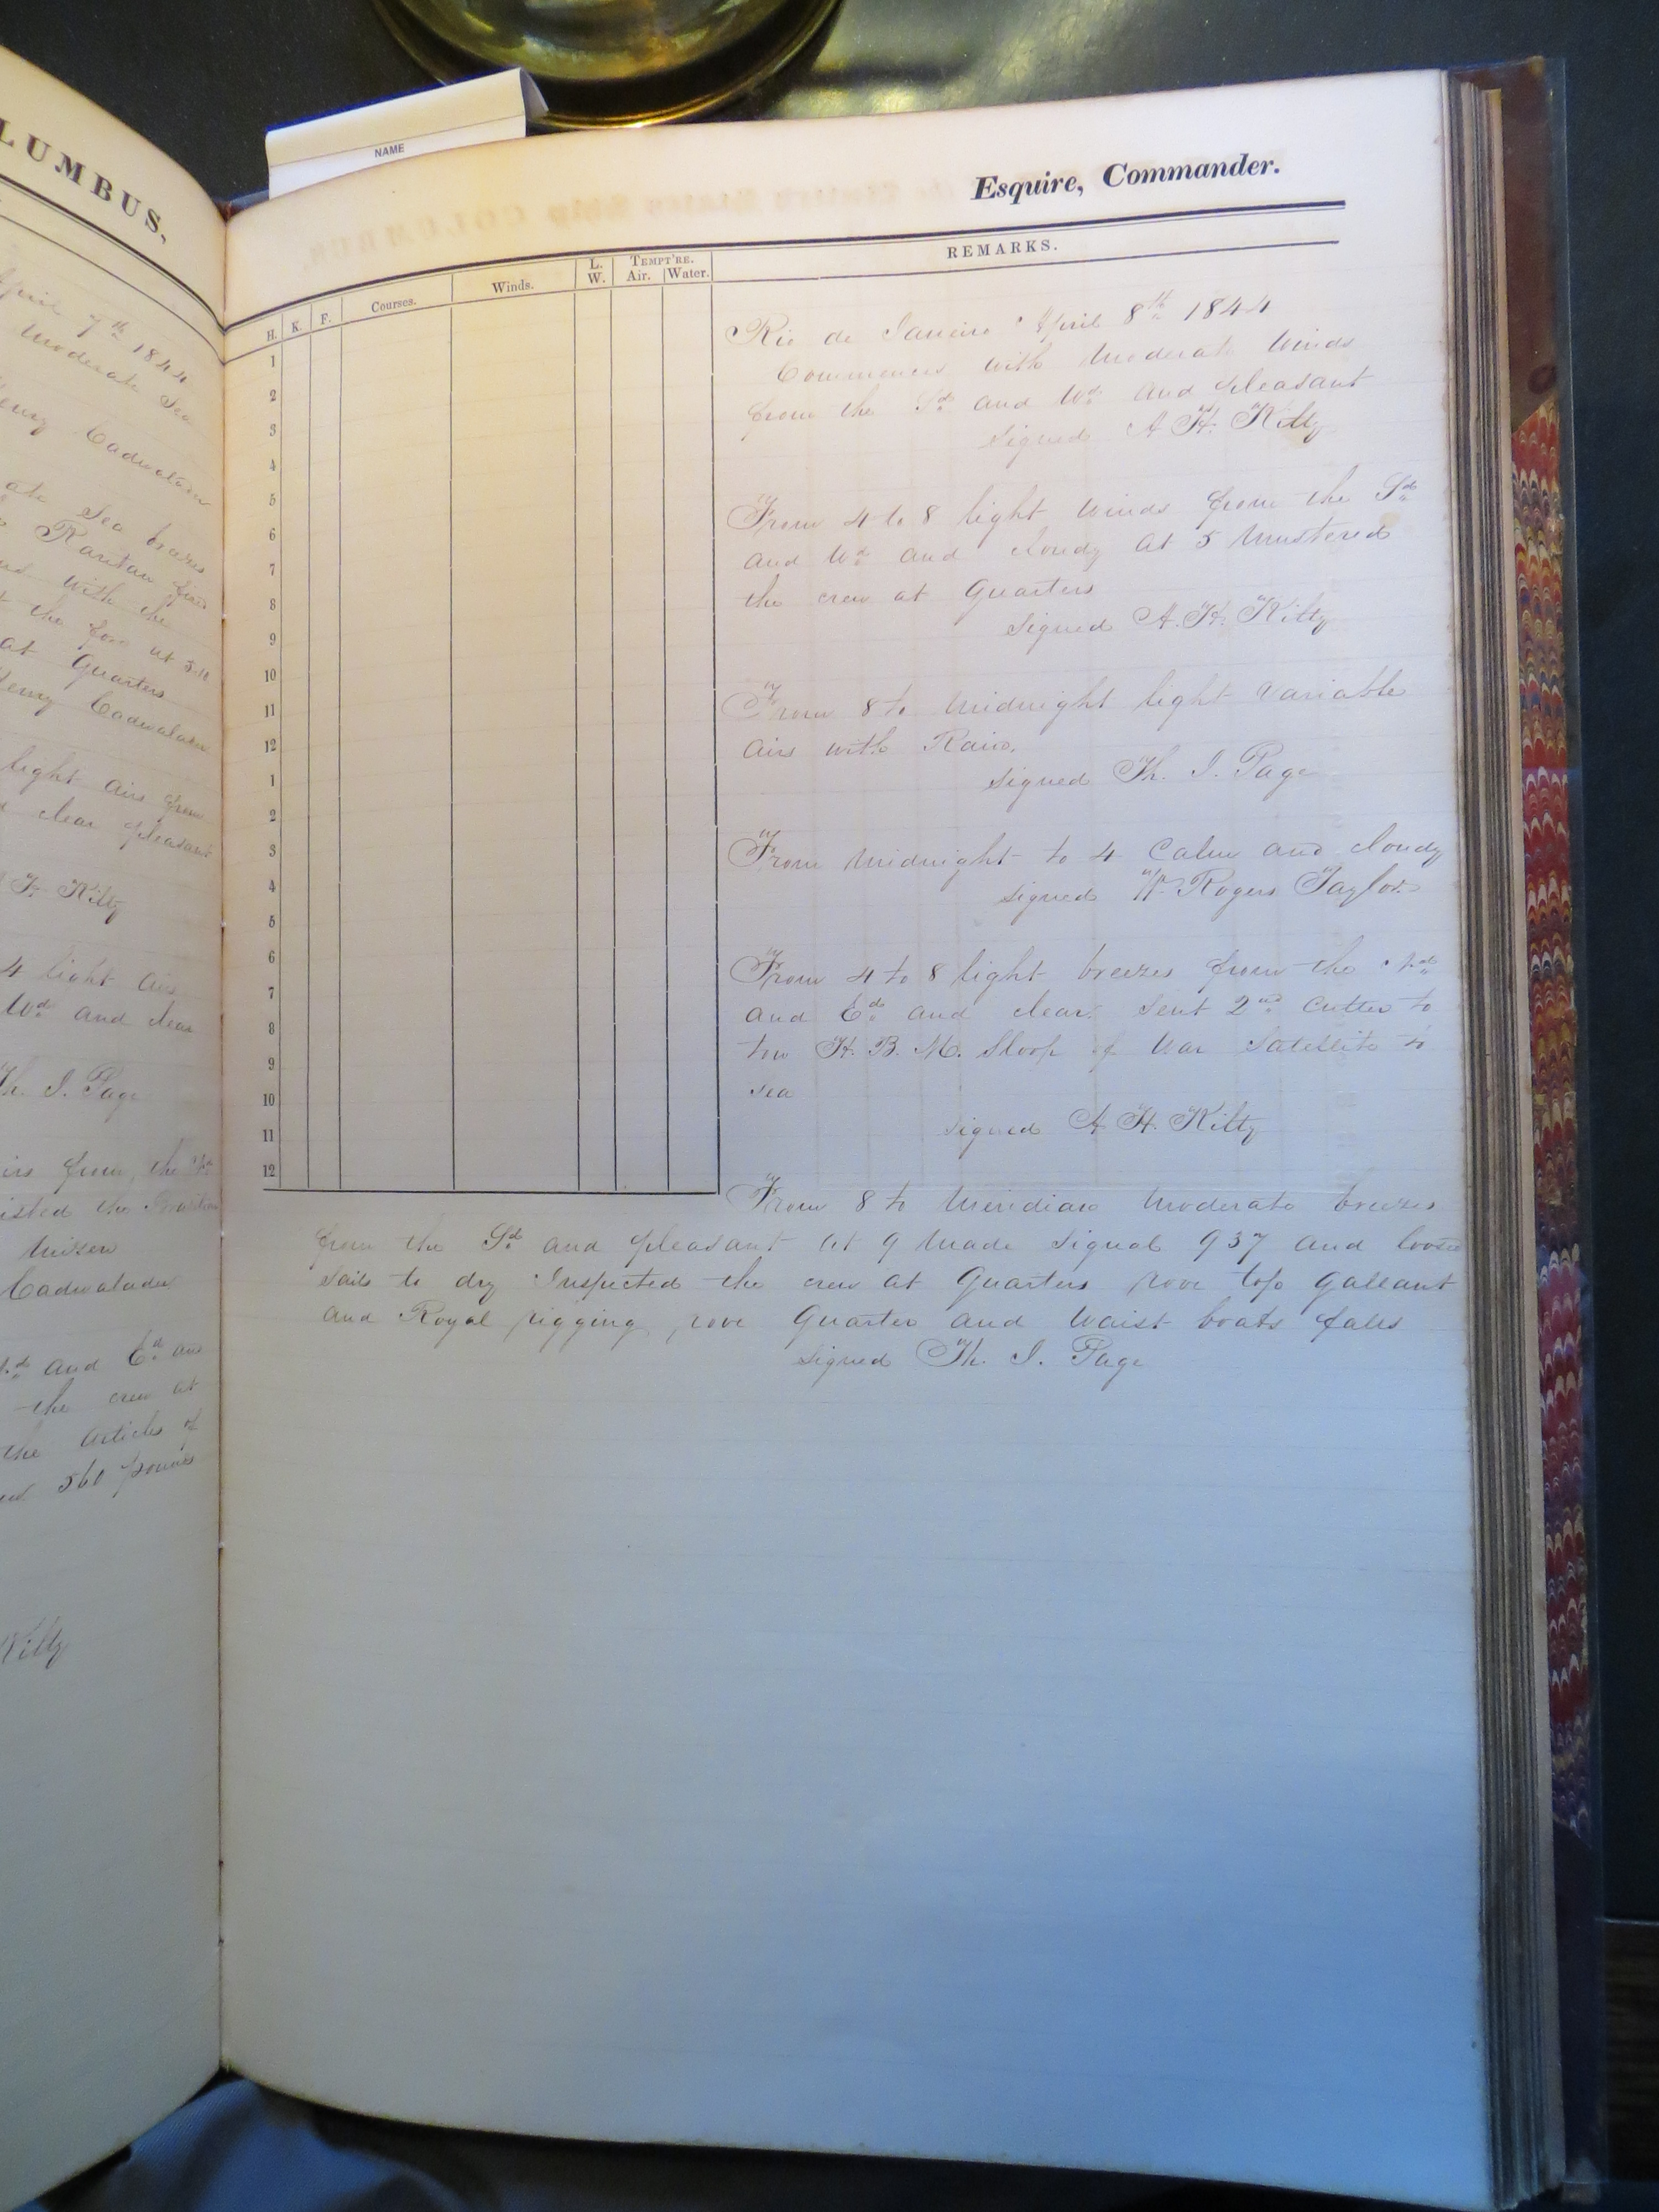 LUMBUS,
April 7th 1844
Moderate Sea
Henry Cadwalader
Sea breezes
Raritan
with the
the
at Quarters
Henry Cadwalader
light airs from
clear pleasant
H. Kilty
4 light airs
Wd and clear
Th. J. Page
airs from the
Mizen
Cadwalader
and Ed and
the crew at
the Articles of
560 pounds
Kilty
NAME
Esquire, Commander.
H. K. F. Courses. Winds. L. W. TEMPT'RE. Air. Water. REMARKS.
1
2
3
4
5
6
7
8
9
10
11
12
1
2
3
4
5
6
7
8
9
10
11
12
Rio de Janeiro April 8th 1844
Commences with Moderate Winds
from the Sd and Wd and pleasant
signed A H. Kilty
From 4 to 8 light winds from the Sd
and Wd and cloudy at 5 Mustered
the crew at Quarters
Signed A. H. Kilty
From 8 to Midnight light Variable
airs with Rain.
signed Th. J. Page
From Midnight to 4 Calm and cloudy
signed Wm Rogers Taylor
From 4 to 8 light breezes from the Nd
and Ed and clear. Sent 2nd Cutter to
tow H. B. M. Sloop of War Satellite to
sea
signed A H. Kilty
From 8 to Meridian Moderate breezes
from the Sd and pleasant At 9 Made Signal 937 and loosed
sails to dry Inspected the crew at Quarters rove top Gallant
and Royal rigging, rove Quarter and Waist boats falls
signed Th. J. Page